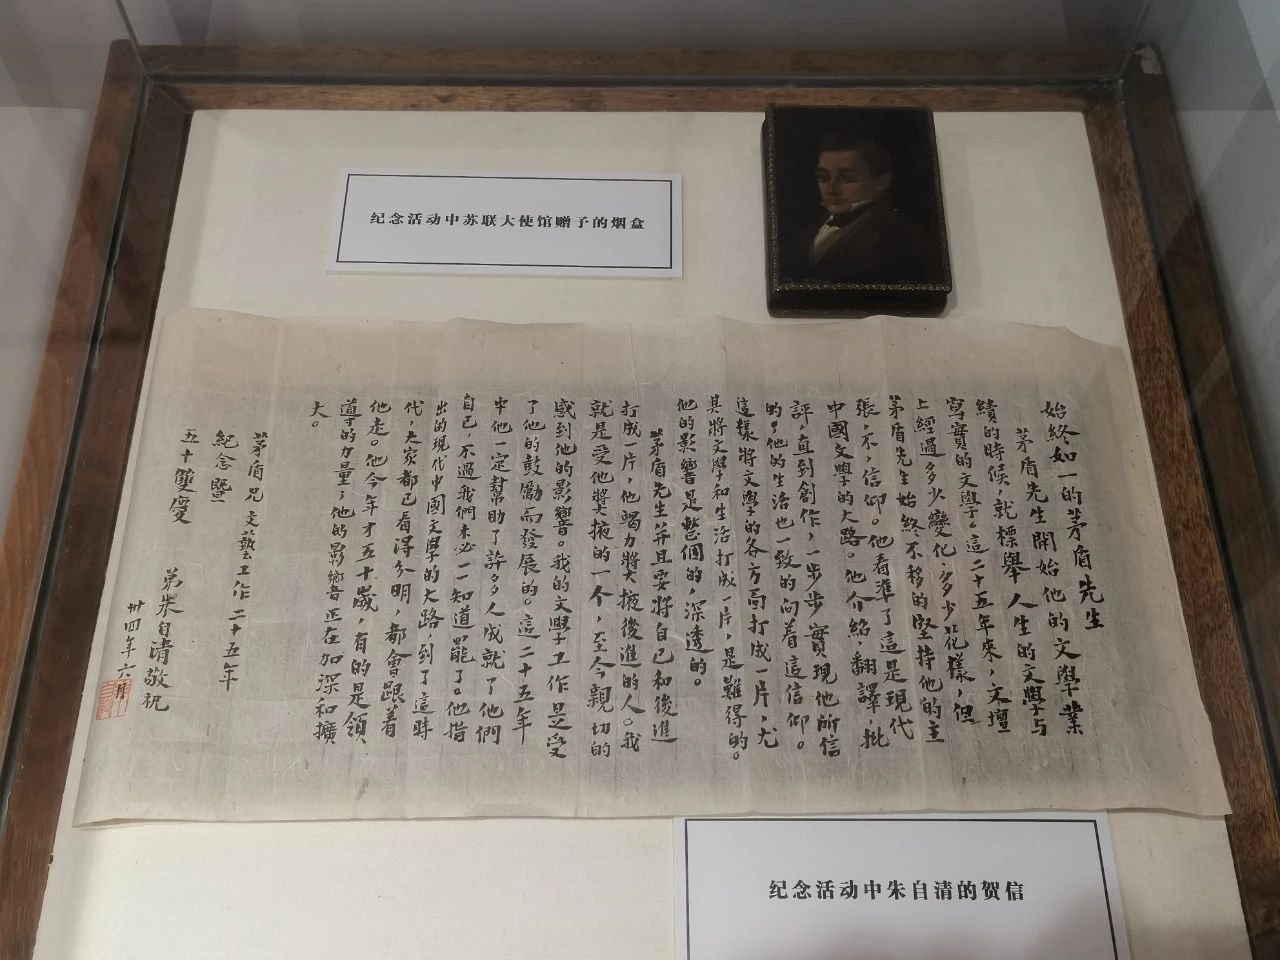 纪念活动中苏联大使馆赠予的烟盒
始終如一的茅盾先生
茅盾先生開始他的文學業
績的時候，就標舉人生的文學与
寫實的文學。這二十五年來，文壇
上經過多少變化，多少花樣，但
茅盾先生始終不移的堅持他的主
張，不，信仰。他看準了這是現代
中國文學的大路。他介紹，翻譯，批
評，直到創作，一步步實現他所信
的；他的生活也一致的向着這信仰。
這樣將文學的各方面打成一片，尤
其將文學和生活打成一片，是難得的。
他的影響是整個的，深透的。
茅盾先生并且要將自己和後進
打成一片，他竭力將大掖後進的人。我
就是受他獎掖的一个，至今親切的
感到他的影響。我的文學工作是受
了他的鼓勵而發展的。這二十五年
中他一定幫助了許多人成就了他們
自己，不過我們未必一一知道罷了。他指
出的現代中國文學的大路，到了這時
代，大家都已看得分明，都會跟着
他走。他今年才五十歲，有的是領
導的力量；他的影響正在加深和擴
大。
茅盾兄文藝工作二十五年
紀念暨
五十雙慶
弟朱自清敬祝
卅四年六月
纪念活动中朱自清的贺信